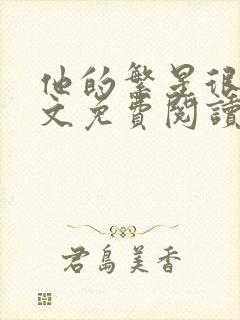 他的繁星很
文免費閱讀
君島美香